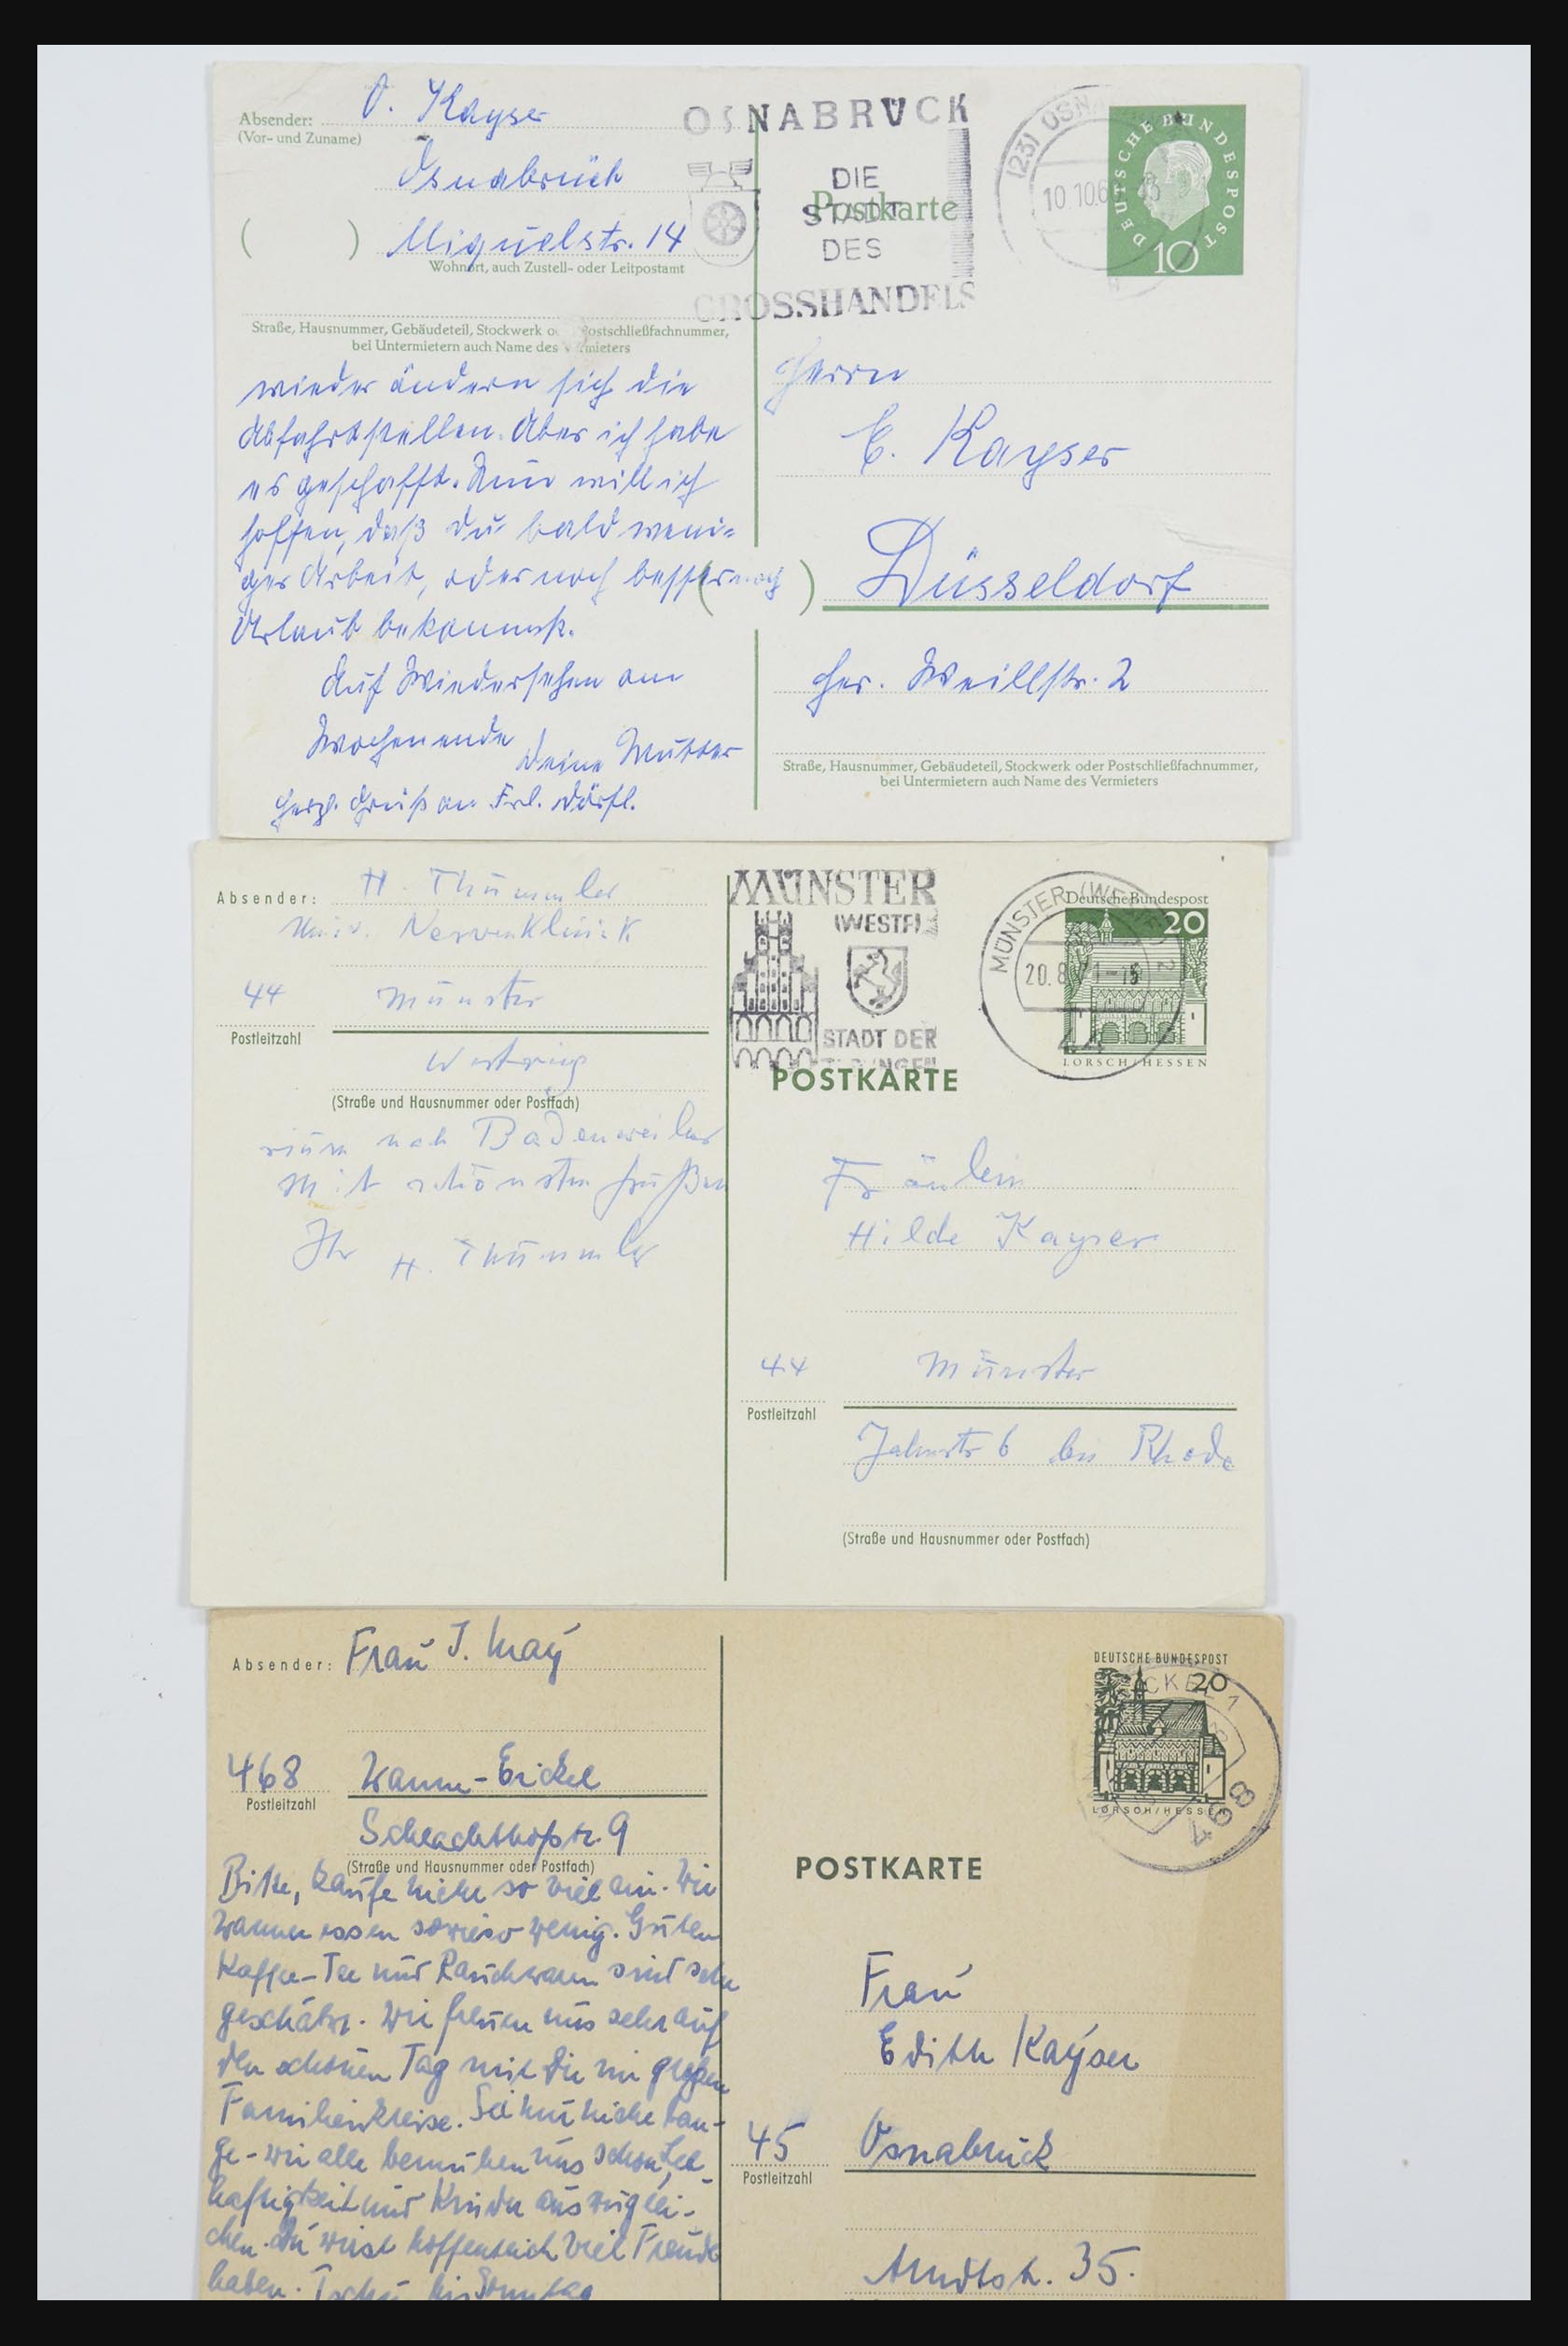 Absender: O. Kayser
(Vor- und Zuname)
Osnabrück
( ) Miquelstr. 14
Wohnort, auch Zustell- oder Leitpostamt
Straße, Hausnummer, Gebäudeteil, Stockwerk Postschließfachnummer,
bei Untermietern auch Name des Vermieters
wieder ändern sich die
Abfahrtstellen. Aber ich habe
es geschafft. Nun will ich
hoffen, daß du bald weni-
ger Arbeit, oder noch besser noch
Urlaub bekommst.
Auf Wiedersehen am
Wochenende
Deine Mutter
Herzl. Gruß an Frl.
OSNABRÜCK
DIE
STADT
DES
GROSSHANDELS
Postkarte
(23) OSN
10.10.6
DEUTSCHE BUNDESPOST
10
Herrn
E. Kayser
( ) Düsseldorf
Weillstr. 2
Straße, Hausnummer, Gebäudeteil, Stockwerk oder Postschließfachnummer,
bei Untermietern auch Name des Vermieters
Absender: H. Thümmler
Univ. Nervenklinik
44 Münster
Postleitzahl
Westring
(Straße und Hausnummer oder Postfach)
nach Badenweiler
Mit schönsten Grüßen
Ihr H. Thümmler
MÜNSTER
(WESTF)
STADT DER
MÜNSTER (WESTF) 2
20.8.71-15
44
Deutsche Bundespost
20
LORSCH/HESSEN
POSTKARTE
Fräulein
Hilde Kayser
44 Münster
Postleitzahl
Jahnstr 6 bei Rhode
(Straße und Hausnummer oder Postfach)
Absender: Frau J. May
468 Wanne-Eickel
Postleitzahl
Schlachthofstr. 9
(Straße und Hausnummer oder Postfach)
Bitte, kaufe nicht so viel ein. Wir
Wanner essen sowieso wenig. Guten
Kaffee-Tee und Rauchwaren sind sehr
geschätzt. Wir freuen uns sehr auf
den schönen Tag mit Dir im großen
Familienkreise. Sei nur nicht ban-
ge - wir alle bemühen uns schon, Leb-
haftigkeit und Kinder auszuglei-
chen. Du wirst hoffentlich viel Freude
haben. Tschü bis Sonntag
DEUTSCHE BUNDESPOST
20
LORSCH/HESSEN
ICKEL 1
468
POSTKARTE
Frau
Edith Kayser
45 Osnabrück
Postleitzahl
Arndtstr. 35.